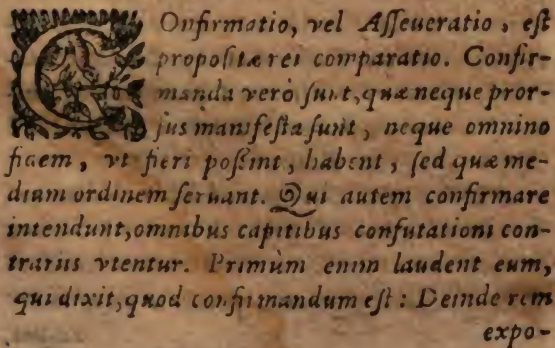 COnfirmatio, vel Asseueratio, est
propositæ rei comparatio. Confir-
manda verò sunt, quæ neque pror-
sus manifesta sunt, neque omnino
fidem, vt fieri possint, habent, sed quæ me-
dium ordinem seruant. Qui autem confirmare
intendunt, omnibus capitibus confutationi con-
trariis vtentur. Primùm enim laudent eum,
qui dixit, quod confirmandum est: Deinde rem
expo-